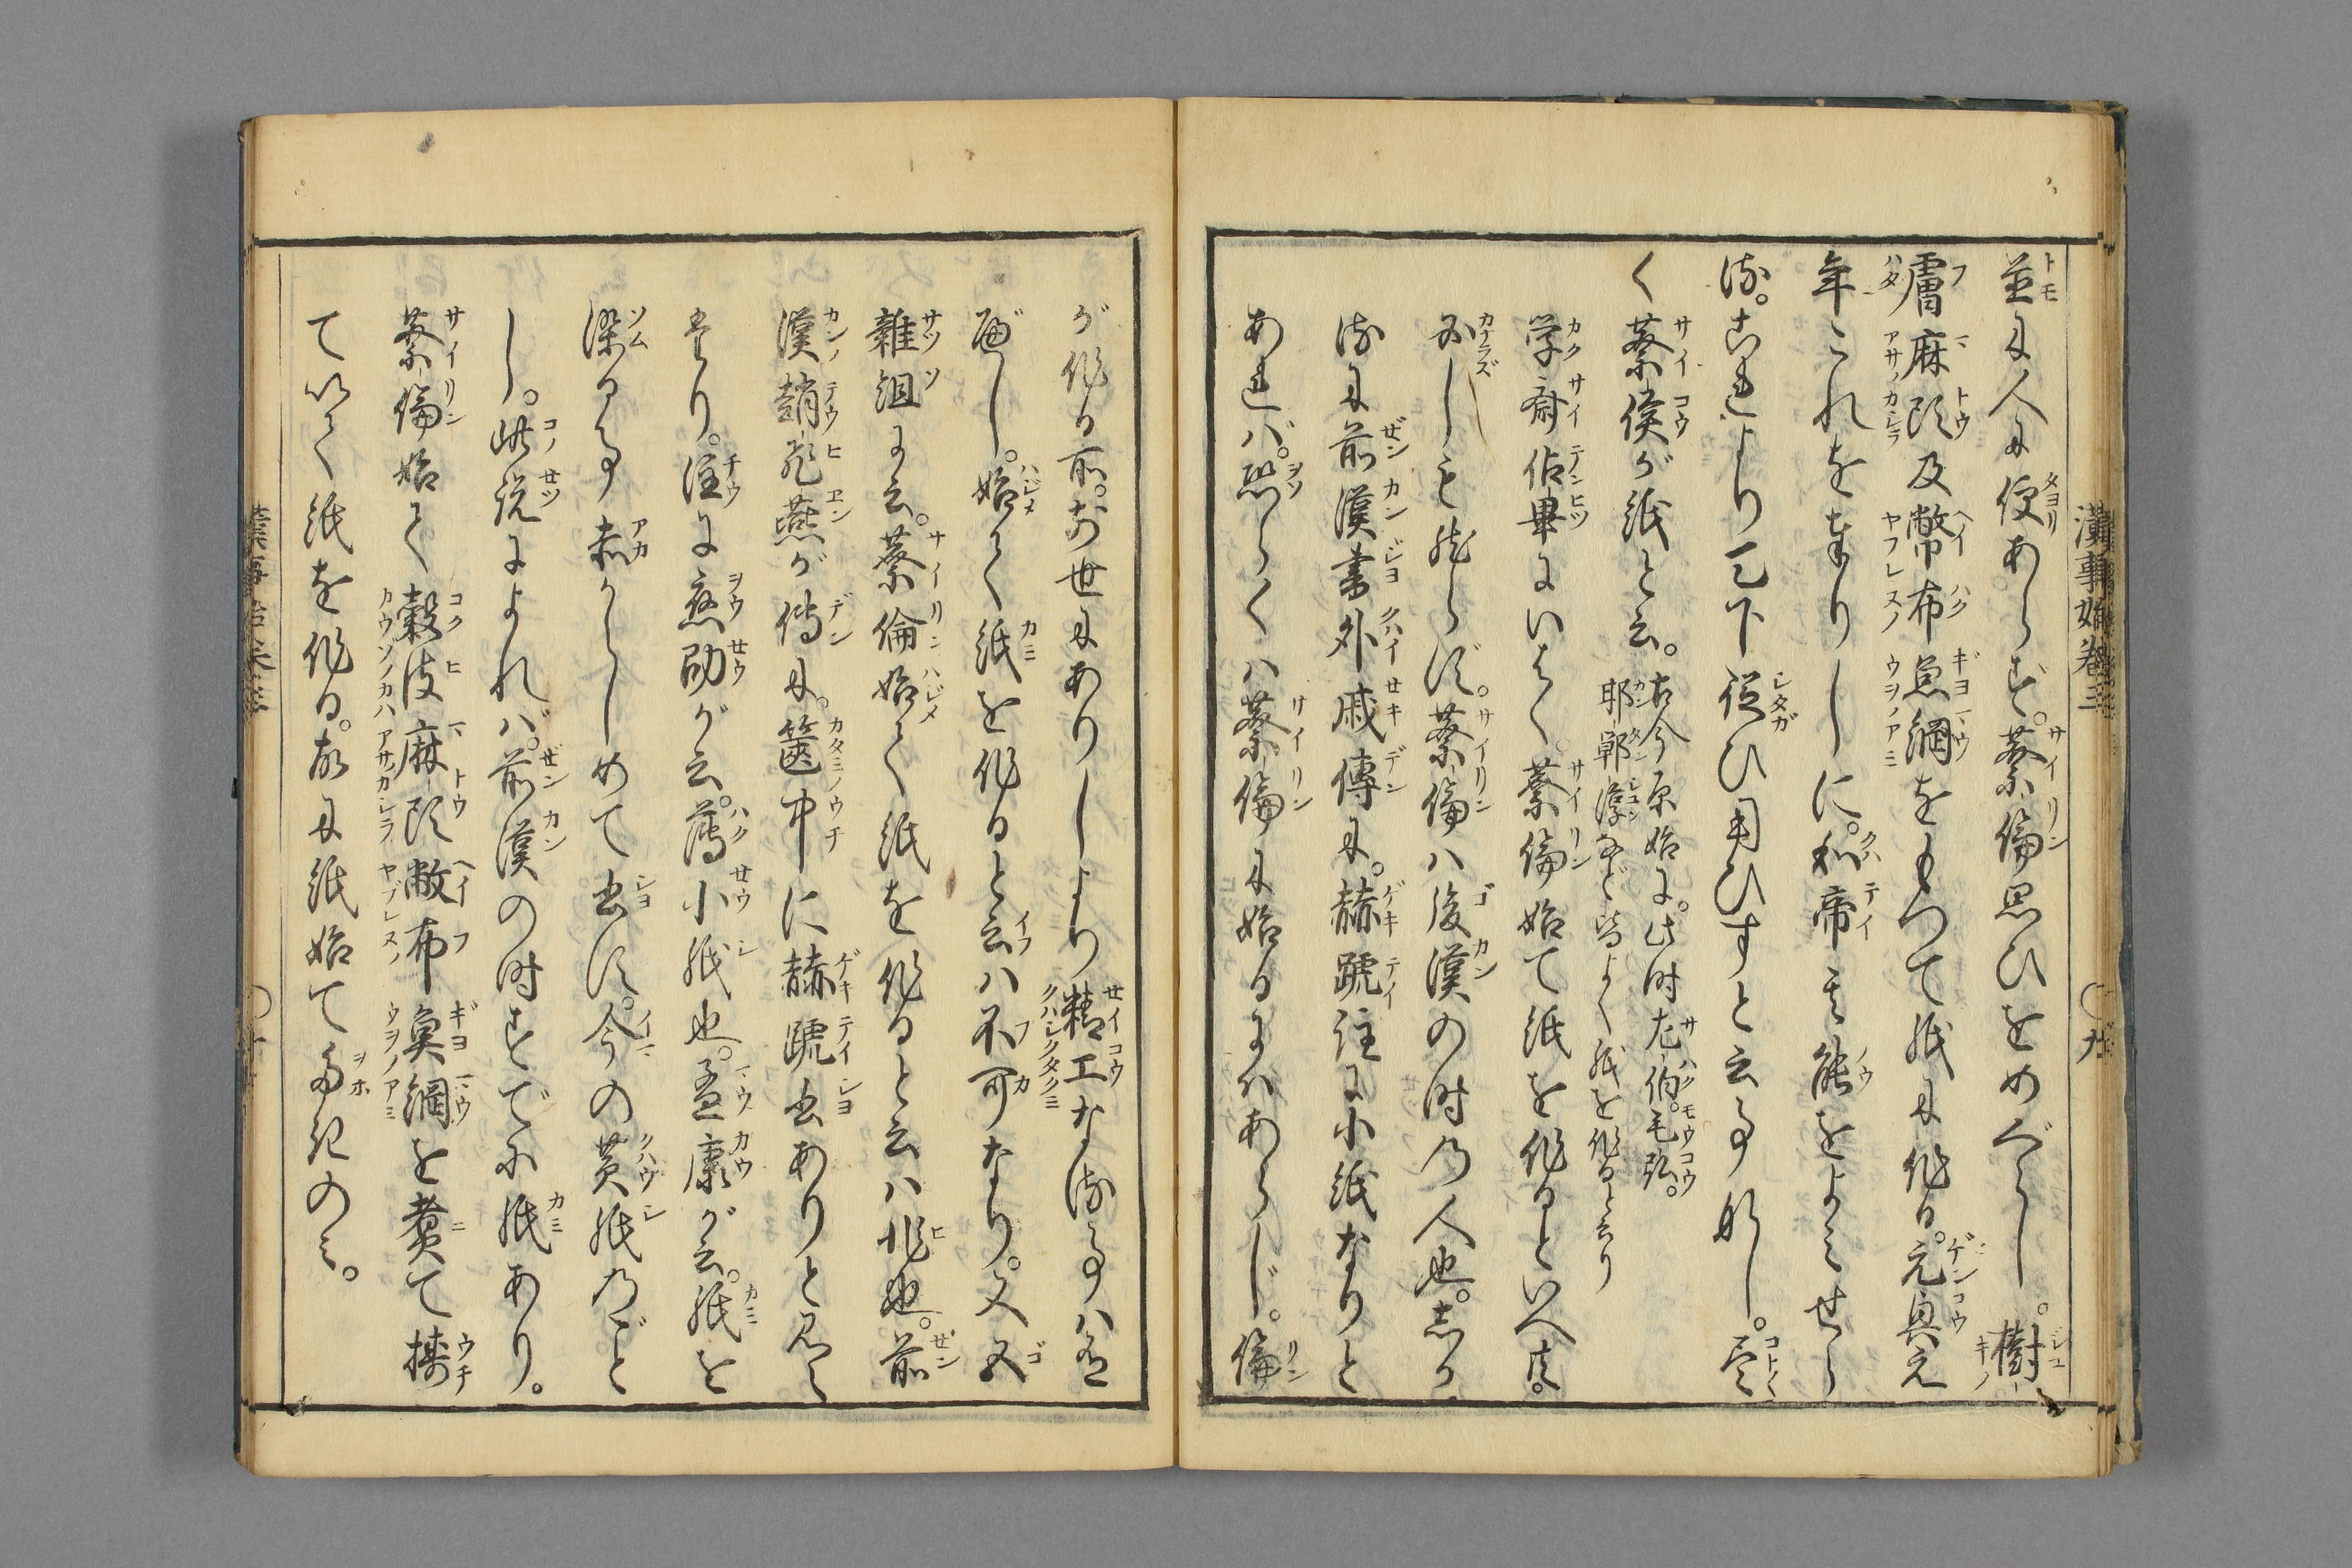 漢事始巻三
並に人に便あらず。蔡倫思ひをめぐらし。樹
膚麻頭及幣布魚網をもつて紙に作る。元興元
年これを奉りしに。和帝其能をよみせら
る。これより天下従ひ用ひずと云事なし。尽
く蔡侯が紙と云。古今原始に。此時左伯。毛弘。
邯鄲淳など皆よく紙を作ると云り
学斎佔畢にいはく。蔡倫始て紙を作るといへ共。
必しも然らず。蔡倫ハ後漢の時の人也。しか
るに前漢書外戚傳に。赫蹏注に小紙なりと
あれバ。恐らくハ蔡倫に始るにハあらじ。倫
が作る前。前世にありしより精工なる事ハ有
べし。始て紙を作ると云ハ不可なり。又五
雜俎に云。蔡倫始て紙を作ると云ハ非也。前
漢趙飛燕が傳に。篋中に赫蹏書ありと見え
たり。注に應劭が云。薄小紙也。孟康が云。紙を
染る事赤からしめて書す。今の黄紙のごと
し。此説によれバ。前漢の時すでに紙あり。
蔡倫始て穀皮麻頭敝布魚網を煮て擣
ていて紙を作る。故に紙始て多きのみ。